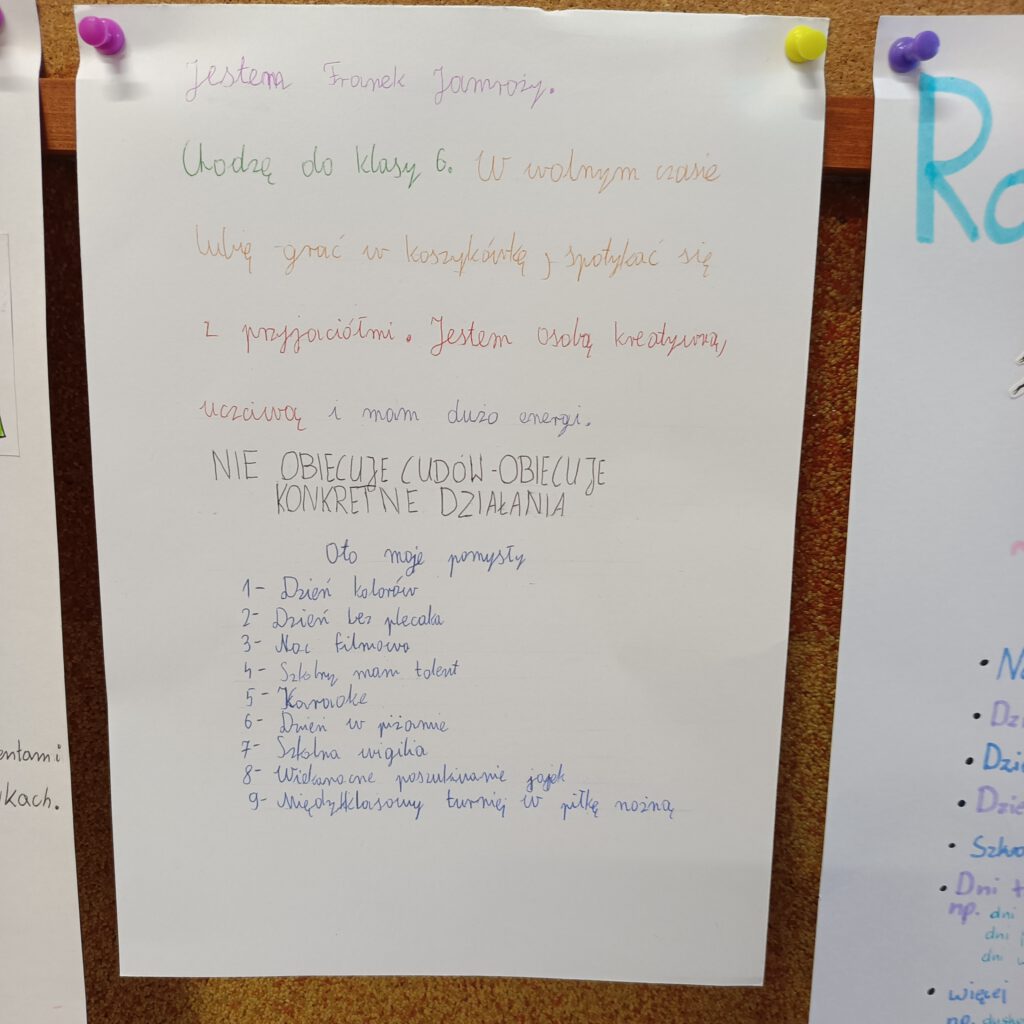 Jestem Franek Jamroży.
Chodzę do klasy 6. W wolnym czasie
lubię grać w koszykówkę, spotykać się
z przyjaciółmi. Jestem osobą kreatywną,
uczciwą i mam dużo energi.
NIE OBIECUJE CUDÓW-OBIECUJE
KONKRETNE DZIAŁANIA
Oto moje pomysły
1- Dzień kolorów
2- Dzień bez plecaka
3- Noc filmowa
4- Szkolny mam talent
5- Karaoke
6- Dzień w piżamie
7- Szkolna wigilia
8- Wielkanocne poszukiwanie jajek
9- Międzyklasowy turniej w piłkę nożną
kach.
Dni
np. dni
dni
dni
więcej
np.